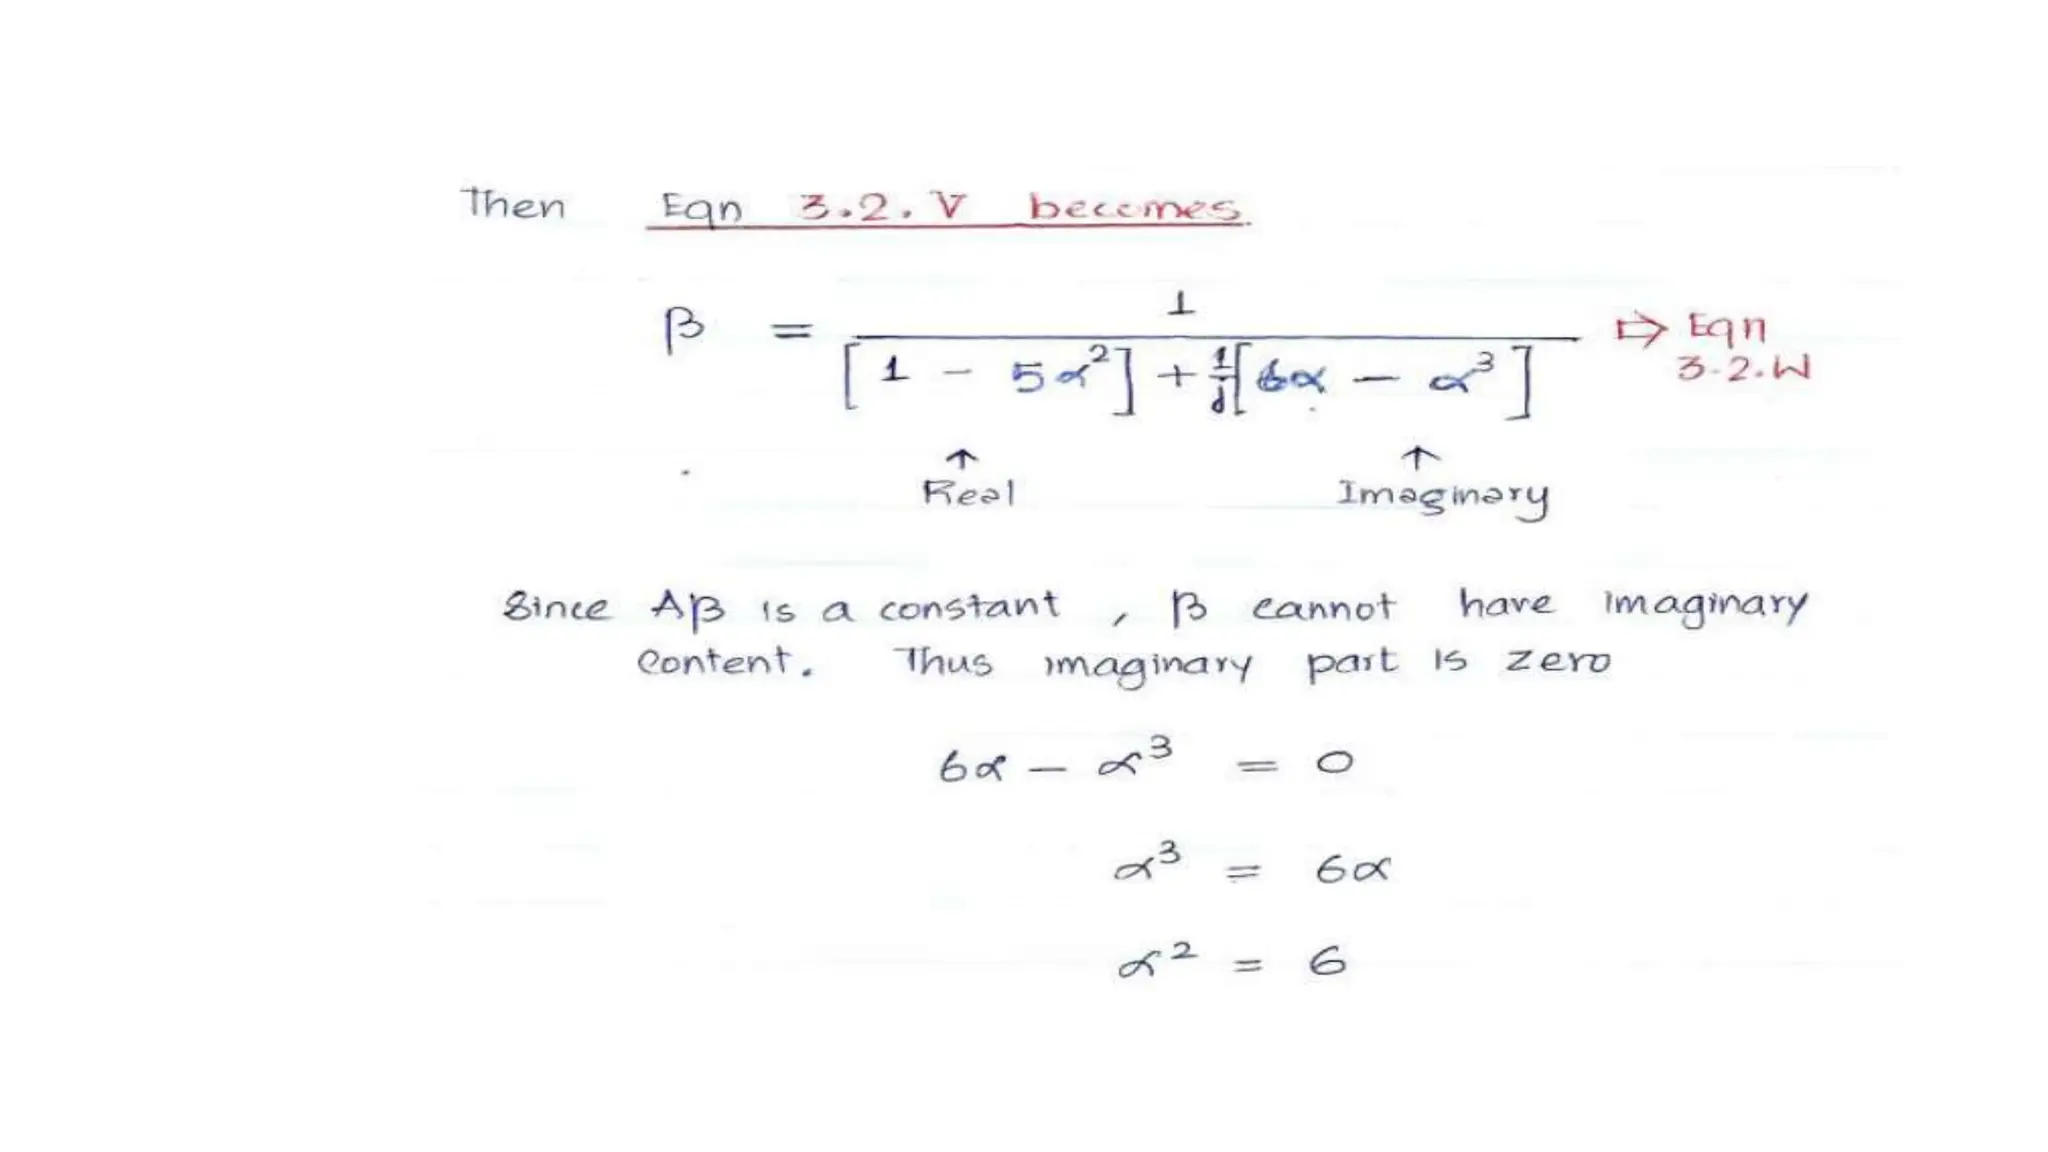 Then Eqn 3.2.V becomes.
β = 1 / [1 - 5α²] + 1/j [6α - α³] ⇨ Eqn 3.2.W
↑ ↑
Real Imaginary
Since Aβ is a constant, β cannot have imaginary
content. Thus imaginary part is zero
6α - α³ = 0
α³ = 6α
α² = 6